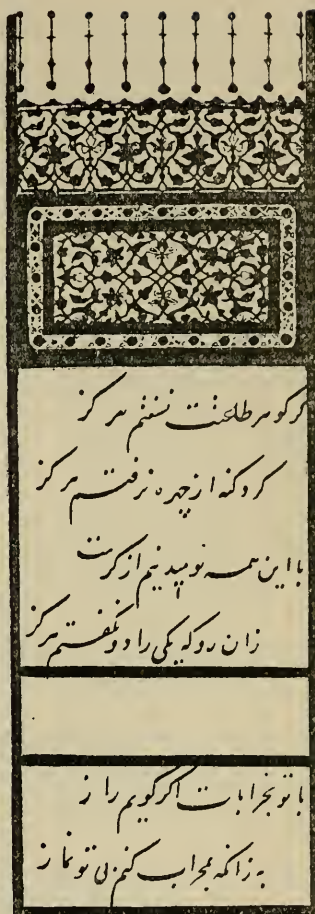 گر گوهر طاعتت نسفتم هرگز
گرد گنه از چهره نرفتم هرگز
با این همه نومید نیم از کرمت
زان رو که یکی را دو نگفتم هرگز
با تو بخرابات اگر گویم راز
به زانکه بمحراب کنم بی تو نماز